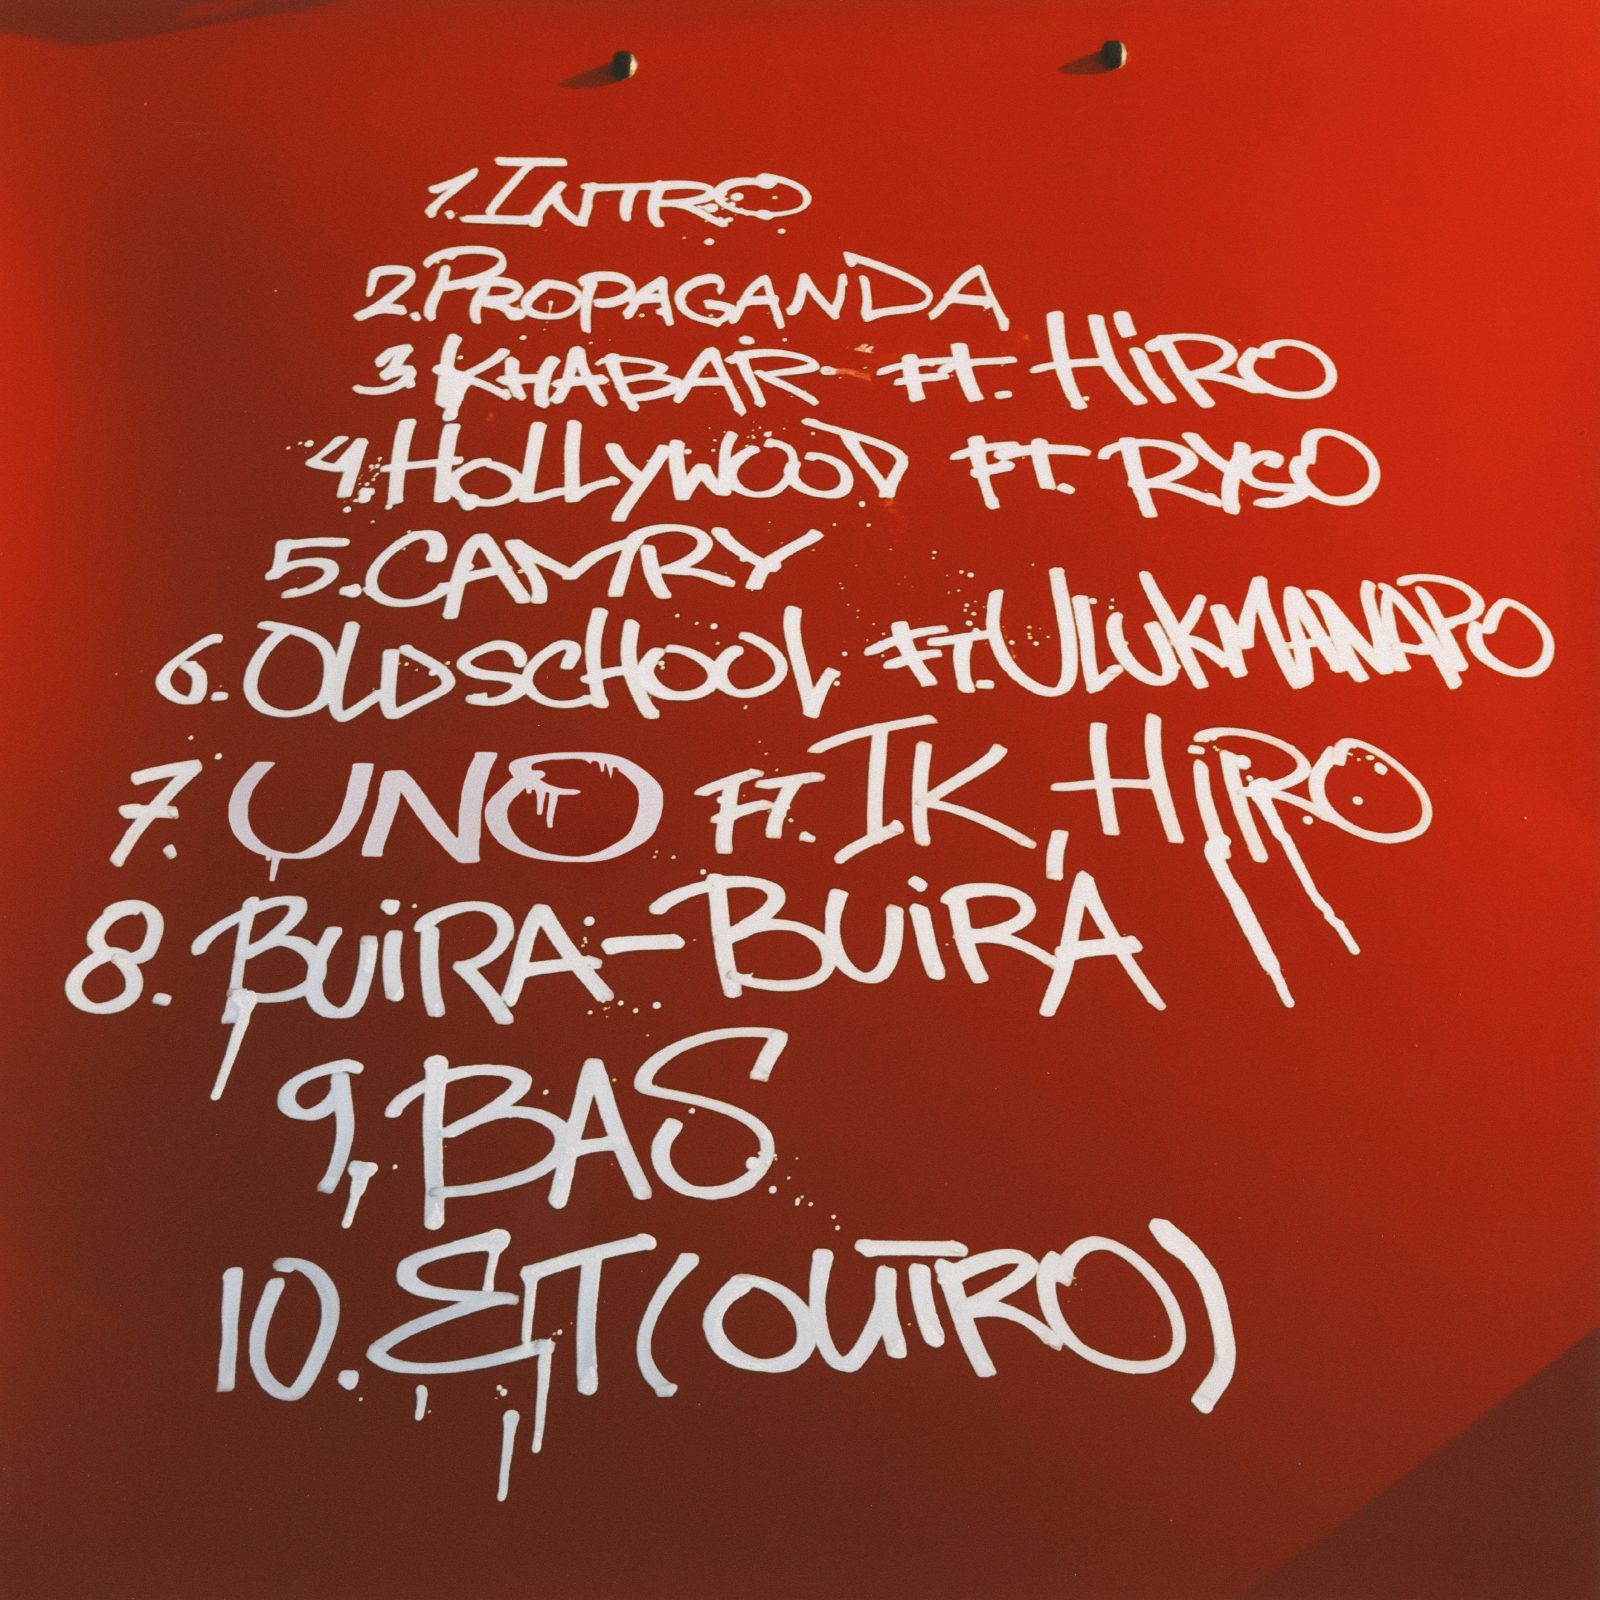 1. INTRO
2. PROPAGANDA
3. KHABAR FT. HIRO
4. HOLLYWOOD FT. RYSO
5. CAMRY
6. OLDSCHOOL FT. ULUKMANAPO
7. UNO FT. IK, HIRO
8. BUIRA-BUIRA
9, BAS
10. EIT (OUTRO)